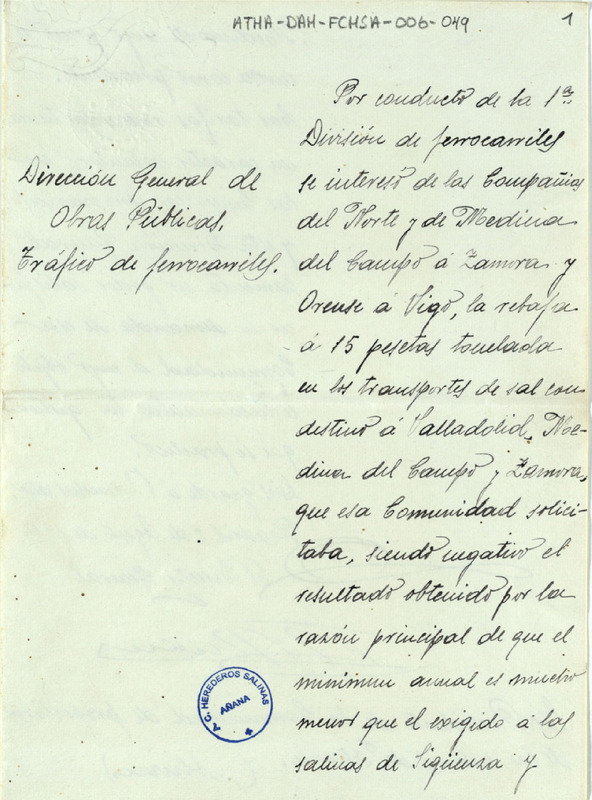 ATHA-DAH-FCHSA-006-049
1
Dirección General de
Obras Públicas.
Tráfico de ferrocarriles.
Por conducto de la 1ª
División de ferrocarriles
se interesó de las Compañías
del Norte y de Medina
del Campo á Zamora y
Orense á Vigo, la rebaja
á 15 pesetas tonelada
en los transportes de sal con
destino á Valladolid, Me-
dina del Campo y Zamora,
que esa Comunidad solici-
taba, siendo negativo el
resultado obtenido por la
razón principal de que el
minimun anual es mucho
menor que el exigido á las
salinas de Sigüenza y
C. HEREDEROS SALINAS
AÑANA